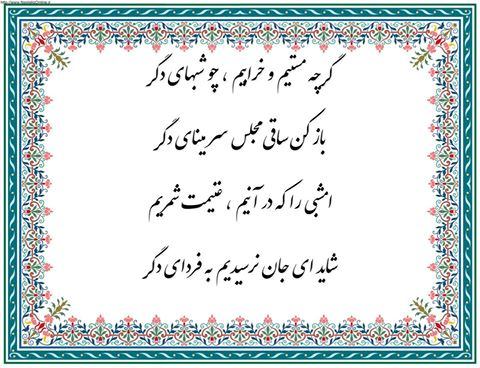 http://www.NastaliqOnline.ir
گرچه مستیم و خرابیم ، چو شبهای دگر
باز کن ساقی مجلس سر مینای دگر
امشبی را که در آنیم ، غنیمت شمریم
شاید ای جان نرسیدیم به فردای دگر